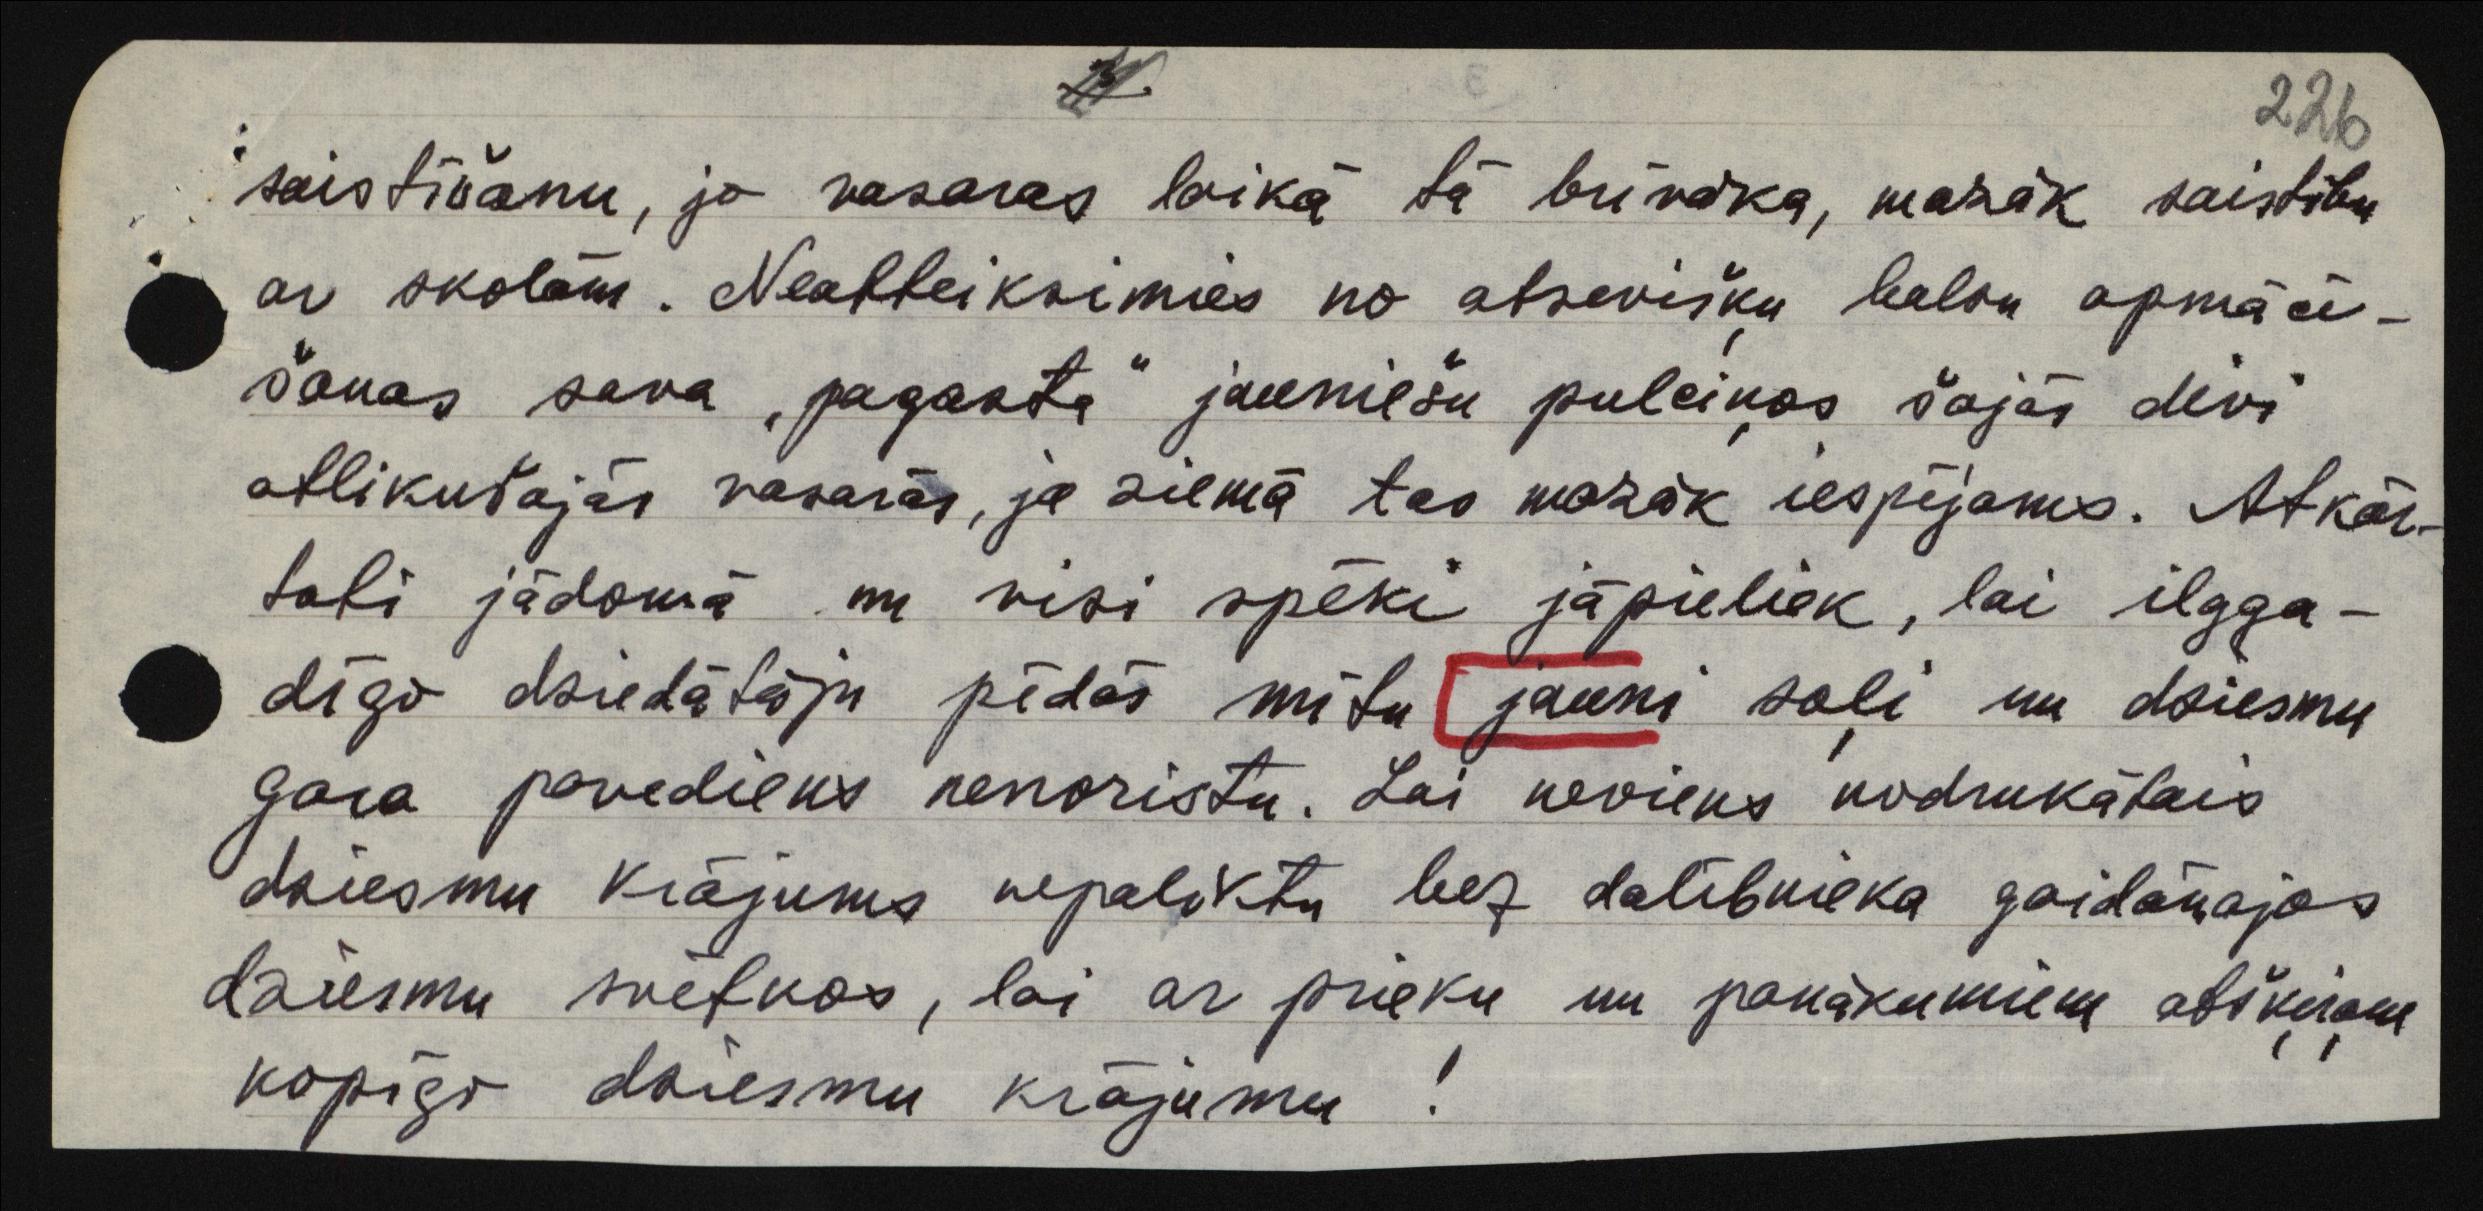 226
saistīšanu, jo vasaras laikā tā brīvāka, mazāk saistību
ar skolām. Neatteiksimies no atsevišķu balsu apmācī-
šanas sava „pagasta" jauniešu pulciņos šajās divi
atlikušajās vasarās, jo ziemā tas mazāk iespējams. Atkār-
toti jādomā un visi spēki jāpieliek, lai ilgga-
dīgo dziedātāju pēdās mītu jauni soļi un dziesmu
gara pavediens nenoristu. Lai neviens nodrukātais
dziesmu krājums nepaliktu bez dalībnieka gaidāmajos
dziesmu svētkos, lai ar prieku un panākumiem atšķiŗam
kopīgo dziesmu krājumu!